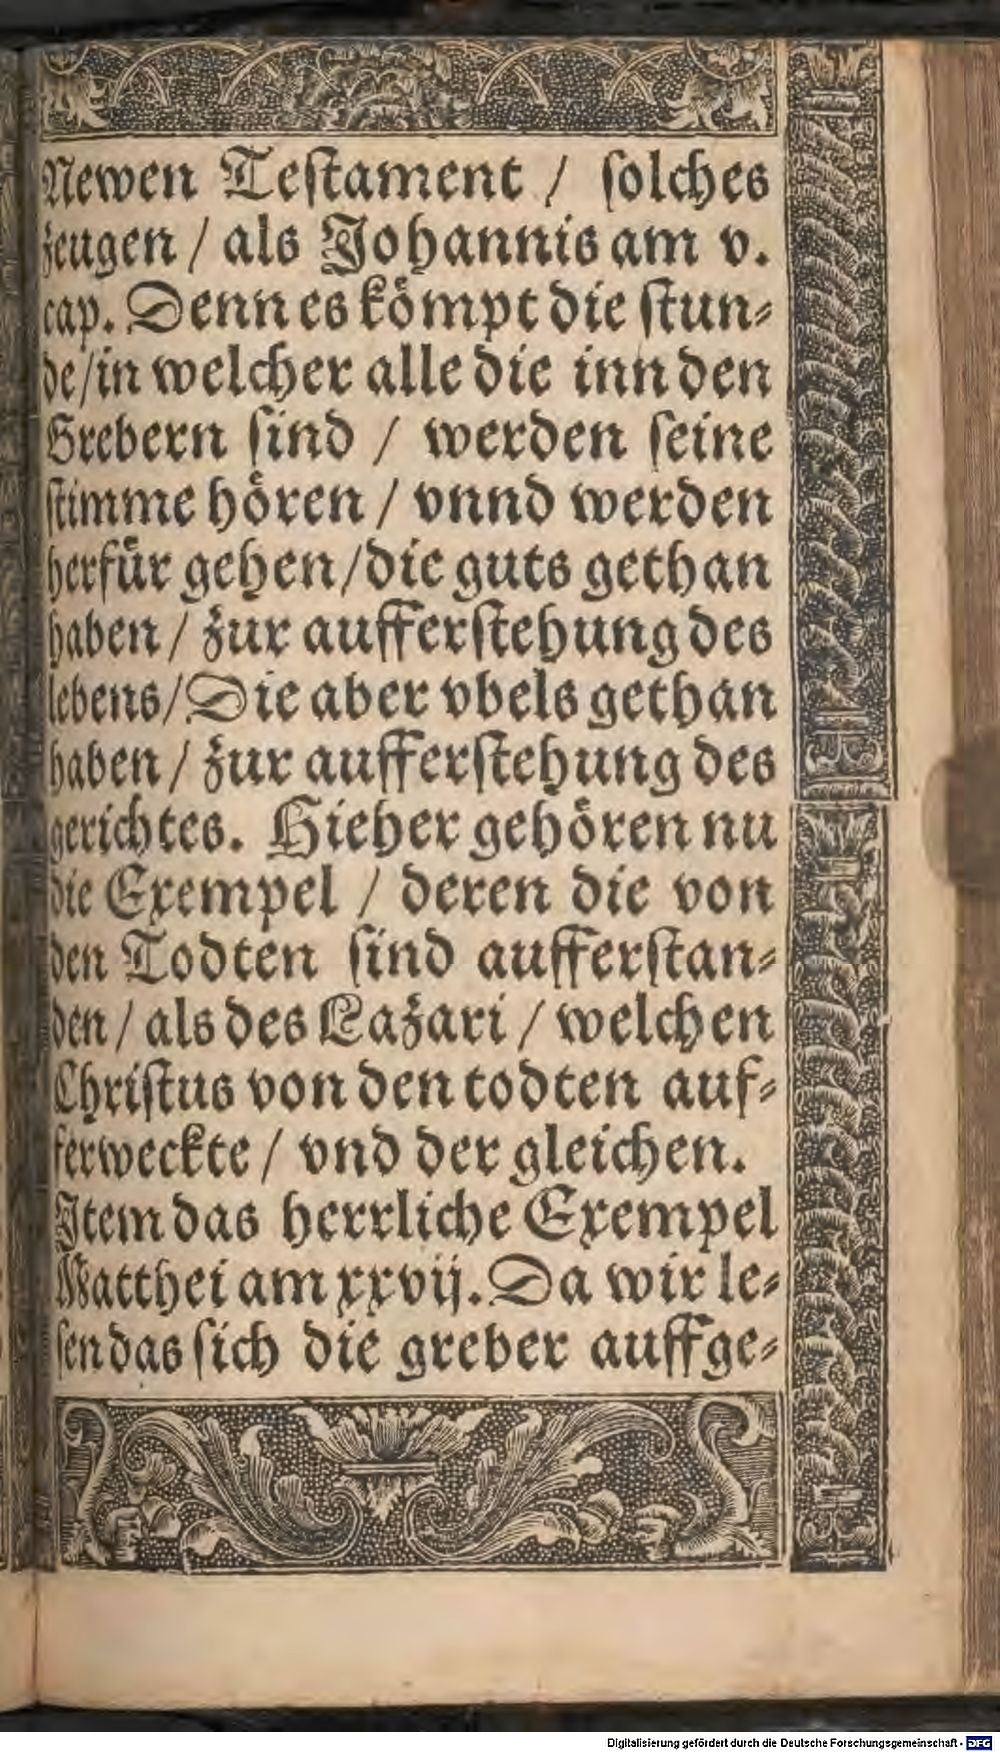 Newen Teſtament / ſolches
zeugen / als Johannis am v.
cap. Denn es koͤmpt die ſtun⸗
de/in welcher alle die inn den
Grebern ſind / werden ſeine
ſtimme hoͤren / vnnd werden
herfuͤr gehen/die guts gethan
haben / zur aufferſtehung des
lebens/Die aber vbels gethan
haben / zur aufferſtehung des
gerichtes. Hieher gehoͤren nu
die Exempel / deren die von
den Todten ſind aufferſtan⸗
den / als des Lazari / welchen
Chriſtus von den todten auf⸗
ferweckte / vnd der gleichen.
Item das herrliche Exempel
Matthei am xxvij. Da wir le⸗
ſen das ſich die greber auffge⸗
Digitalisierung gefördert durch die Deutsche Forschungsgemeinschaft - DFG